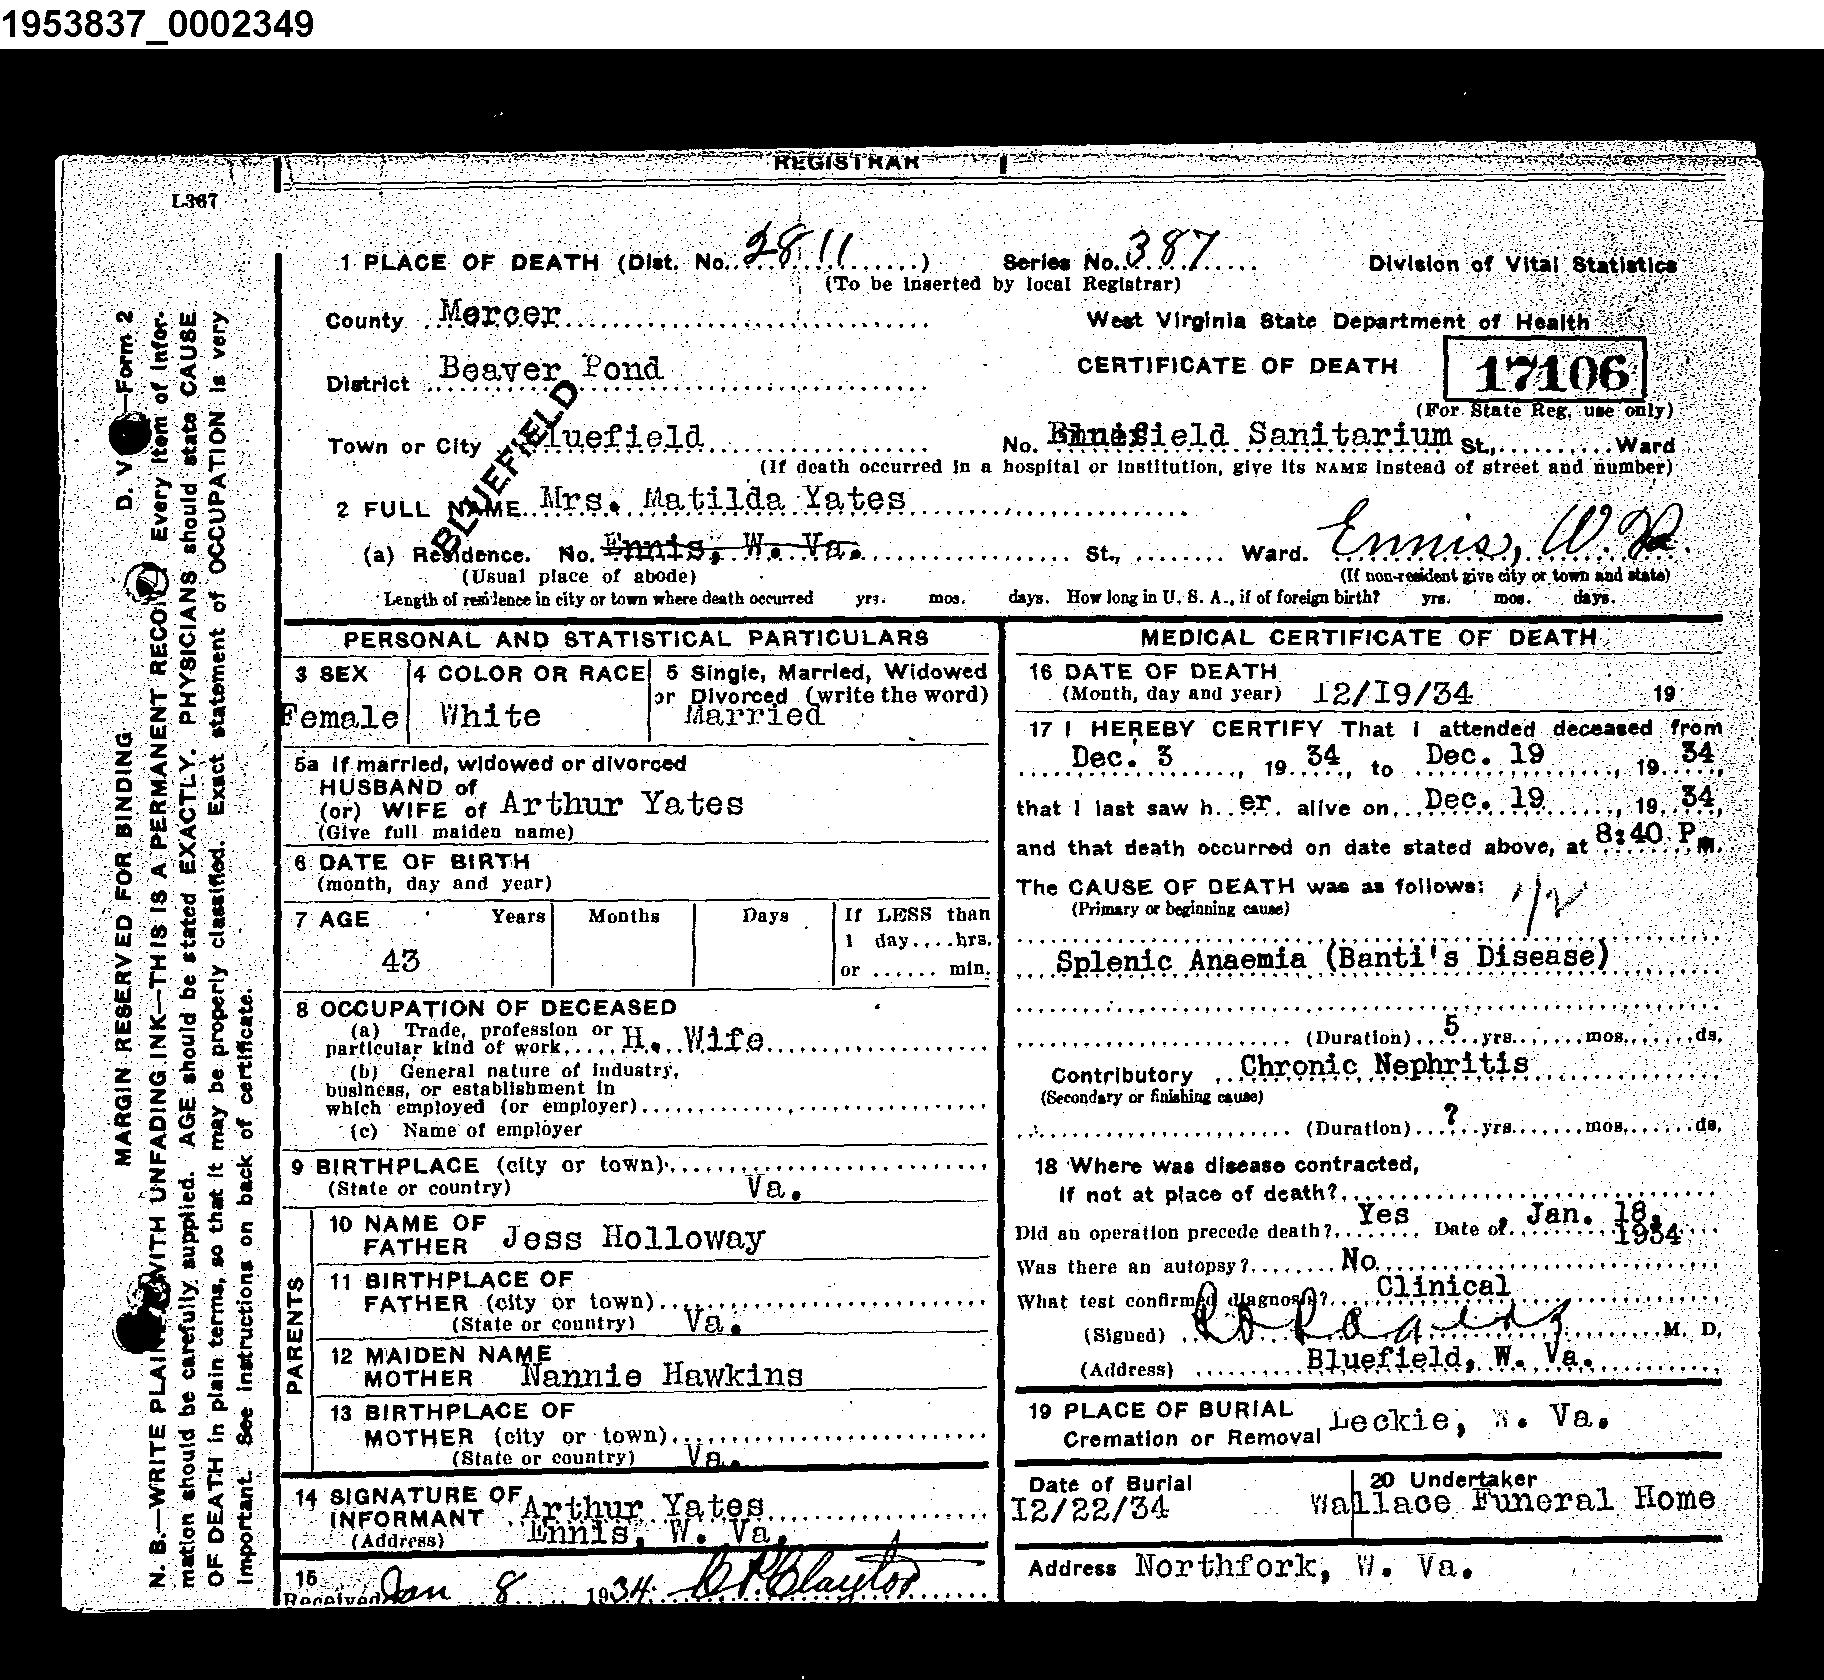 1953837_0002349
REGISTRAR
L367
1 PLACE OF DEATH (Dist. No. 2811) Series No. 387 Division of Vital Statistics
(To be inserted by local Registrar)
County Mercer West Virginia State Department of Health
District Beaver Pond CERTIFICATE OF DEATH 17106
(For State Reg. use only)
BLUEFIELD
Town or City Bluefield No. Bluefield Sanitarium St., Ward
(If death occurred in a hospital or institution, give its NAME instead of street and number)
2 FULL NAME Mrs. Matilda Yates
(a) Residence. No. Ennis, W. Va. St., Ward. Ennis, W. Va.
(Usual place of abode) (If non-resident give city or town and state)
Length of residence in city or town where death occurred yrs. mos. days. How long in U. S. A., if of foreign birth? yrs. mos. days.
PERSONAL AND STATISTICAL PARTICULARS
3 SEX 4 COLOR OR RACE 5 Single, Married, Widowed
or Divorced (write the word)
Female White Married
5a If married, widowed or divorced
HUSBAND of
(or) WIFE of Arthur Yates
(Give full maiden name)
6 DATE OF BIRTH
(month, day and year)
7 AGE Years Months Days If LESS than
1 day....hrs.
43
or ...... min.
8 OCCUPATION OF DECEASED
(a) Trade, profession or
particular kind of work..... H. Wife
(b) General nature of industry,
business, or establishment in
which employed (or employer)
(c) Name of employer
9 BIRTHPLACE (city or town)
(State or country) Va.
PARENTS
10 NAME OF
FATHER Jess Holloway
11 BIRTHPLACE OF
FATHER (city or town)
(State or country) Va.
12 MAIDEN NAME
MOTHER Nannie Hawkins
13 BIRTHPLACE OF
MOTHER (city or town)
(State or country) Va.
14 SIGNATURE OF
INFORMANT Arthur Yates
(Address) Ennis, W. Va.
15
Received Jan 8 1934
MEDICAL CERTIFICATE OF DEATH
16 DATE OF DEATH
(Month, day and year) 12/19/34 19
17 I HEREBY CERTIFY That I attended deceased from
Dec. 3, 19 34, to Dec. 19, 19 34,
that I last saw h er alive on Dec. 19, 19 34,
and that death occurred on date stated above, at 8:40 P m.
The CAUSE OF DEATH was as follows:
(Primary or beginning cause)
Splenic Anaemia (Banti's Disease)
(Duration) 5 yrs. mos. ds.
Contributory Chronic Nephritis
(Secondary or finishing cause)
(Duration) ? yrs. mos. ds.
18 Where was disease contracted,
if not at place of death?
Did an operation precede death? Yes Date of Jan. 18, 1934
Was there an autopsy? No.
What test confirmed diagnosis? Clinical
(Signed) M. D.
(Address) Bluefield, W. Va.
19 PLACE OF BURIAL
Cremation or Removal Leckie, W. Va.
Date of Burial 20 Undertaker
12/22/34 Wallace Funeral Home
Address Northfork, W. Va.
MARGIN RESERVED FOR BINDING D. V —Form 2
N. B.—WRITE PLAINLY WITH UNFADING INK—THIS IS A PERMANENT RECORD. Every item of infor-
mation should be carefully supplied. AGE should be stated EXACTLY. PHYSICIANS should state CAUSE
OF DEATH in plain terms, so that it may be properly classified. Exact statement of OCCUPATION is very
important. See instructions on back of certificate.